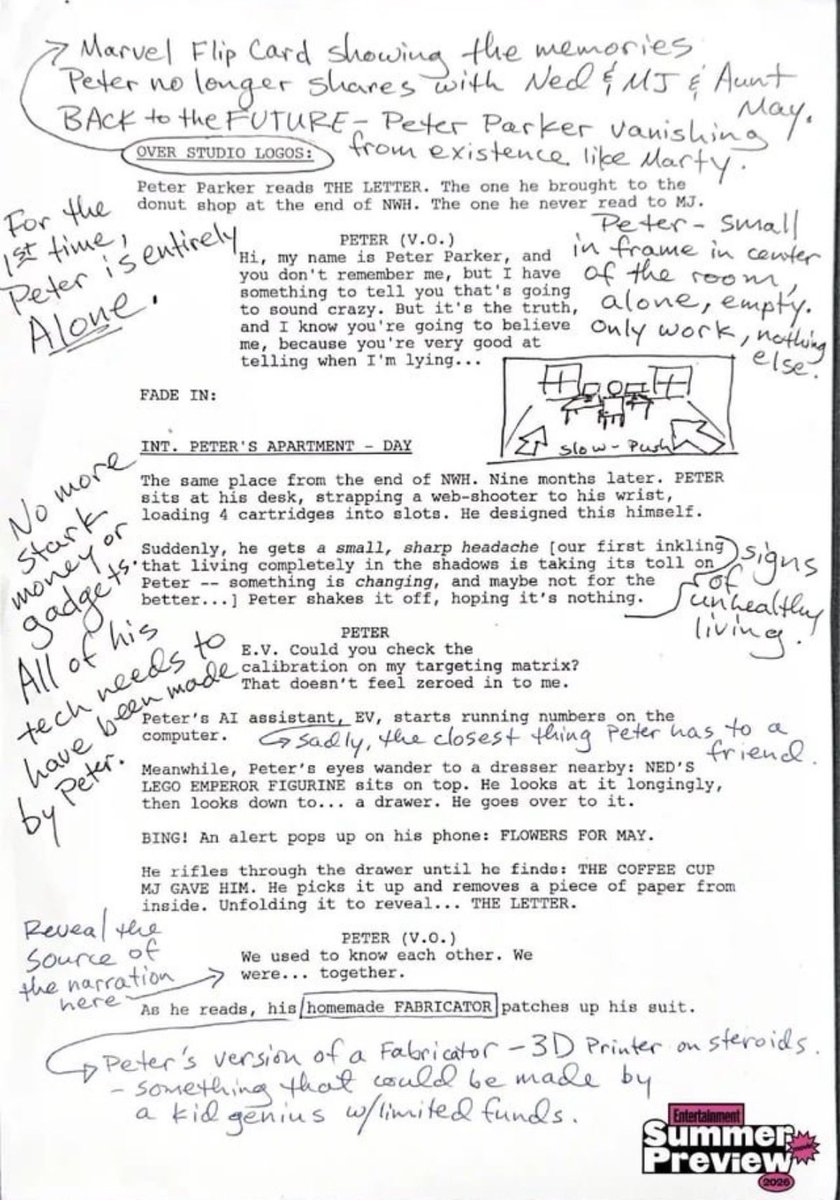 Marvel Flip Card showing the memories
Peter no longer shares with Ned & MJ & Aunt
May.
BACK to the FUTURE - Peter Parker vanishing
from existence like Marty.
OVER STUDIO LOGOS:
Peter Parker reads THE LETTER. The one he brought to the
donut shop at the end of NWH. The one he never read to MJ.
For the
1st time,
Peter is entirely
Alone.
PETER (V.O.)
Hi, my name is Peter Parker, and
you don't remember me, but I have
something to tell you that's going
to sound crazy. But it's the truth,
and I know you're going to believe
me, because you're very good at
telling when I'm lying...
Peter - small
in frame in center
of the room,
alone, empty.
Only work, nothing
else.
FADE IN:
Slow-Push
INT. PETER'S APARTMENT - DAY
The same place from the end of NWH. Nine months later. PETER
sits at his desk, strapping a web-shooter to his wrist,
loading 4 cartridges into slots. He designed this himself.
No more
Stark
money or
gadgets.
All of his
tech needs to
have been made
by Peter.
Suddenly, he gets a small, sharp headache [our first inkling
that living completely in the shadows is taking its toll on
Peter -- something is changing, and maybe not for the
better...] Peter shakes it off, hoping it's nothing.
signs
of
unhealthy
living.
PETER
E.V. Could you check the
calibration on my targeting matrix?
That doesn't feel zeroed in to me.
Peter's AI assistant, EV, starts running numbers on the
computer.
Sadly, the closest thing Peter has to a
friend.
Meanwhile, Peter's eyes wander to a dresser nearby: NED'S
LEGO EMPEROR FIGURINE sits on top. He looks at it longingly,
then looks down to... a drawer. He goes over to it.
BING! An alert pops up on his phone: FLOWERS FOR MAY.
He rifles through the drawer until he finds: THE COFFEE CUP
MJ GAVE HIM. He picks it up and removes a piece of paper from
inside. Unfolding it to reveal... THE LETTER.
Reveal the
source of
the narration
here
PETER (V.O.)
We used to know each other. We
were... together.
As he reads, his homemade FABRICATOR patches up his suit.
Peter's version of a Fabricator - 3D Printer on steroids.
- something that could be made by
a kid genius w/limited funds.
Entertainment
Summer
Preview
2026